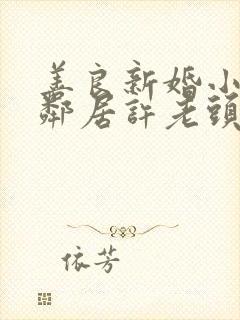 羞良新婚小
鄰居許老頭
依芳